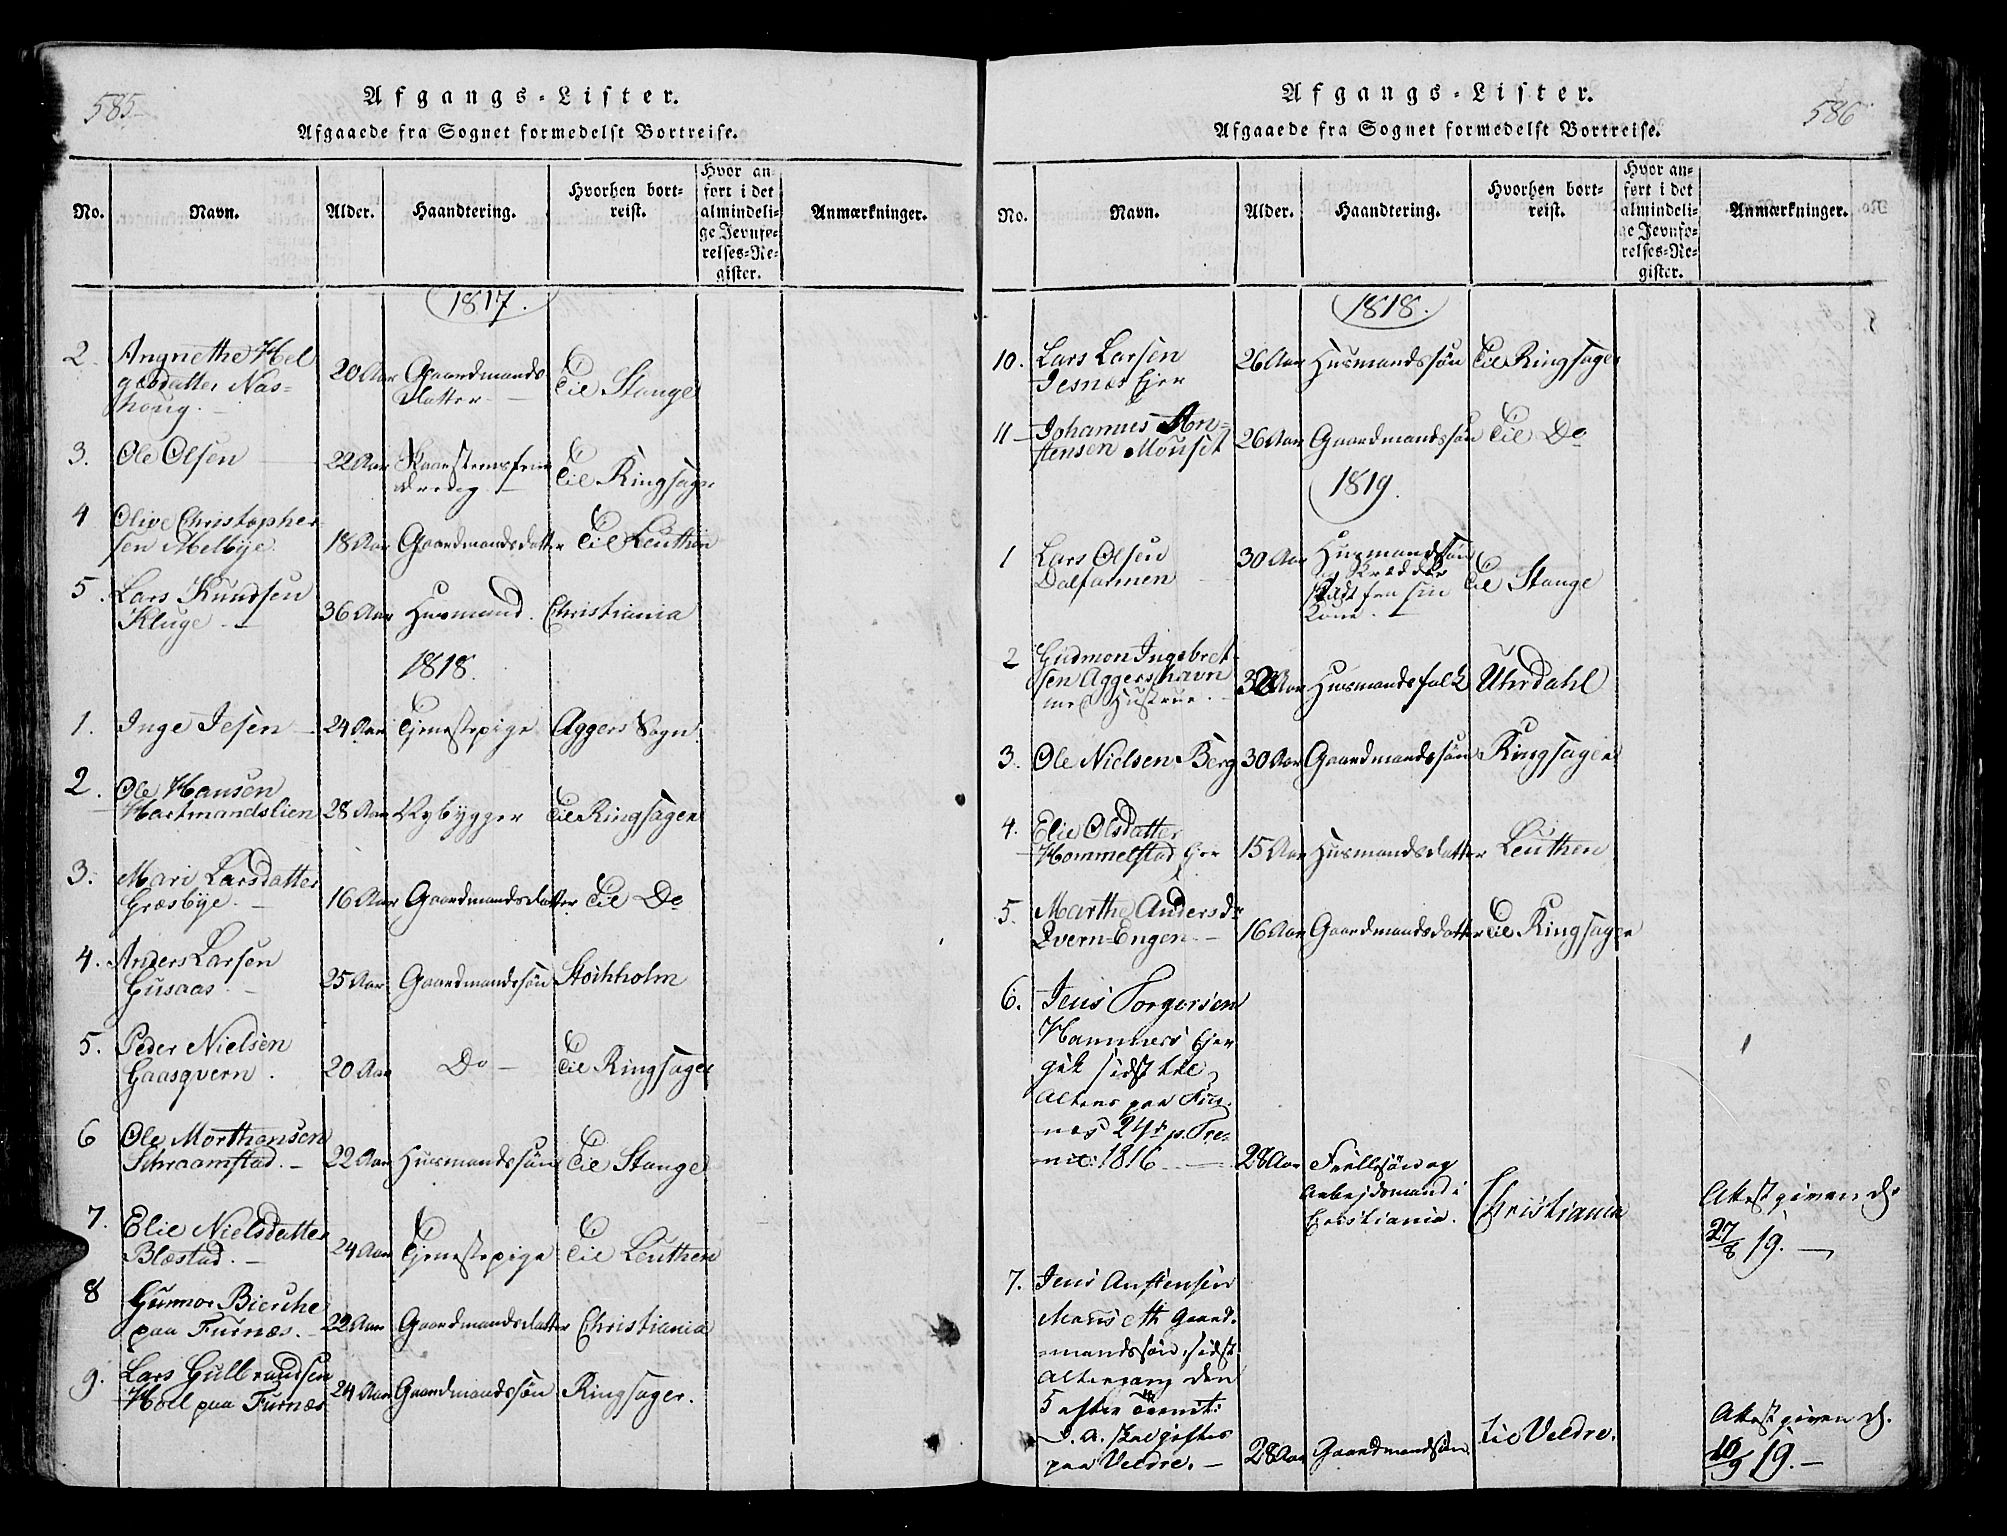 585
Afgangs-Lister.
Afgaaede fra Sognet formedelst Bortreise.
No. Navn. Alder. Haandtering. Hvorhen bortreist. Hvor anført i det almindelige Jevnførelses-Register. Anmærkninger.
1817.
2. Angnethe Hel
gesdatter Nas-
houg. — 20 Aar Gaardmands
Datter — Til Stange
3. Ole Olsen — 22 Aar Skorstensfeier
dreng — Til Ringsager
4 Olive Christopher
sen Melbye. 18 Aar Gaardmandsdatter Til Leuthen
5. Lars Knudsen
Kluge — 36 Aar Husmand. Christiania
1818.
1. Inge Jesen — 24 Aar Tjenestepige Aggers Sogn.
2. Ole Hansen
Hartmandslien 28 Aar Nybygger Til Ringsager
3. Mari Larsdatter
Græsbye. — 16 Aar Gaardmandsdatter Til Do
4. Anders Larsen
Gusaas. — 25 Aar Gaardmandssøn Stockholm
5. Peder Nielsen
Gaasqvern. 20 Aar Do — Til Ringsager
6 Ole Morthensen
Schraamstad. — 22 Aar Husmandssøn Til Stange
7. Elie Nielsdatter
Blæstad. — 24 Aar Tjenestepige Til Leuthen
8 Gunnor Bierche
paa Furnæs. — 22 Aar Gaardmandsdatter Christiania
9. Lars Gulbrandsen
Holl paa Furnæs 24 Aar Gaardmandssøn Ringsager.
586
Afgangs-Lister.
Afgaaede fra Sognet formedelst Bortreise.
No. Navn. Alder. Haandtering. Hvorhen bortreist. Hvor anført i det almindelige Jevnførelses-Register. Anmærkninger.
1818.
10. Lars Larsen
Jesnes Ejer 26 Aar Husmandssøn Til Ringsager
11 — Johannes Arn-
stensen Mouset 26 Aar Gaardmandssøn Til Do
1819.
1 Lars Olsen
Dalfarmen 30 Aar Husmandssøn
og Skrædder
skildt fra sin
Kone. — Til Stange
2 Gudmon Ingebret
sen Aggershavn
med Hustrue. 32 Aar Husmandsfolk Uhrdahl
3. Ole Nielsen Berg 30 Aar Gaardmandssøn Ringsager
4. Elie Olsdatter
Hommelstad Ejer 15 Aar Husmandsdatter Leuthen
5. Marthe Andersdr
Qvern-Engen — 16 Aar Gaardmandsdatter Til Ringsager
6. Jens Torgersen
Hammers Ejer
gik sidst til
Alters paa Fur-
næs 24de p. Tre-
nit: 1816 — 28 Aar
Arbejdsmand i
Cristiania. Christiania Attest given d.
27/8 19. —
7. Jens Anstensen
Mouseth Gaard-
mandssøn, sidst
Altergang den
5 efter Trenit:
d. A. skal giftes
paa Veldre. — 28 Aar Gaardmandssøn til Veldre. Attest given d.
10/9 19. —